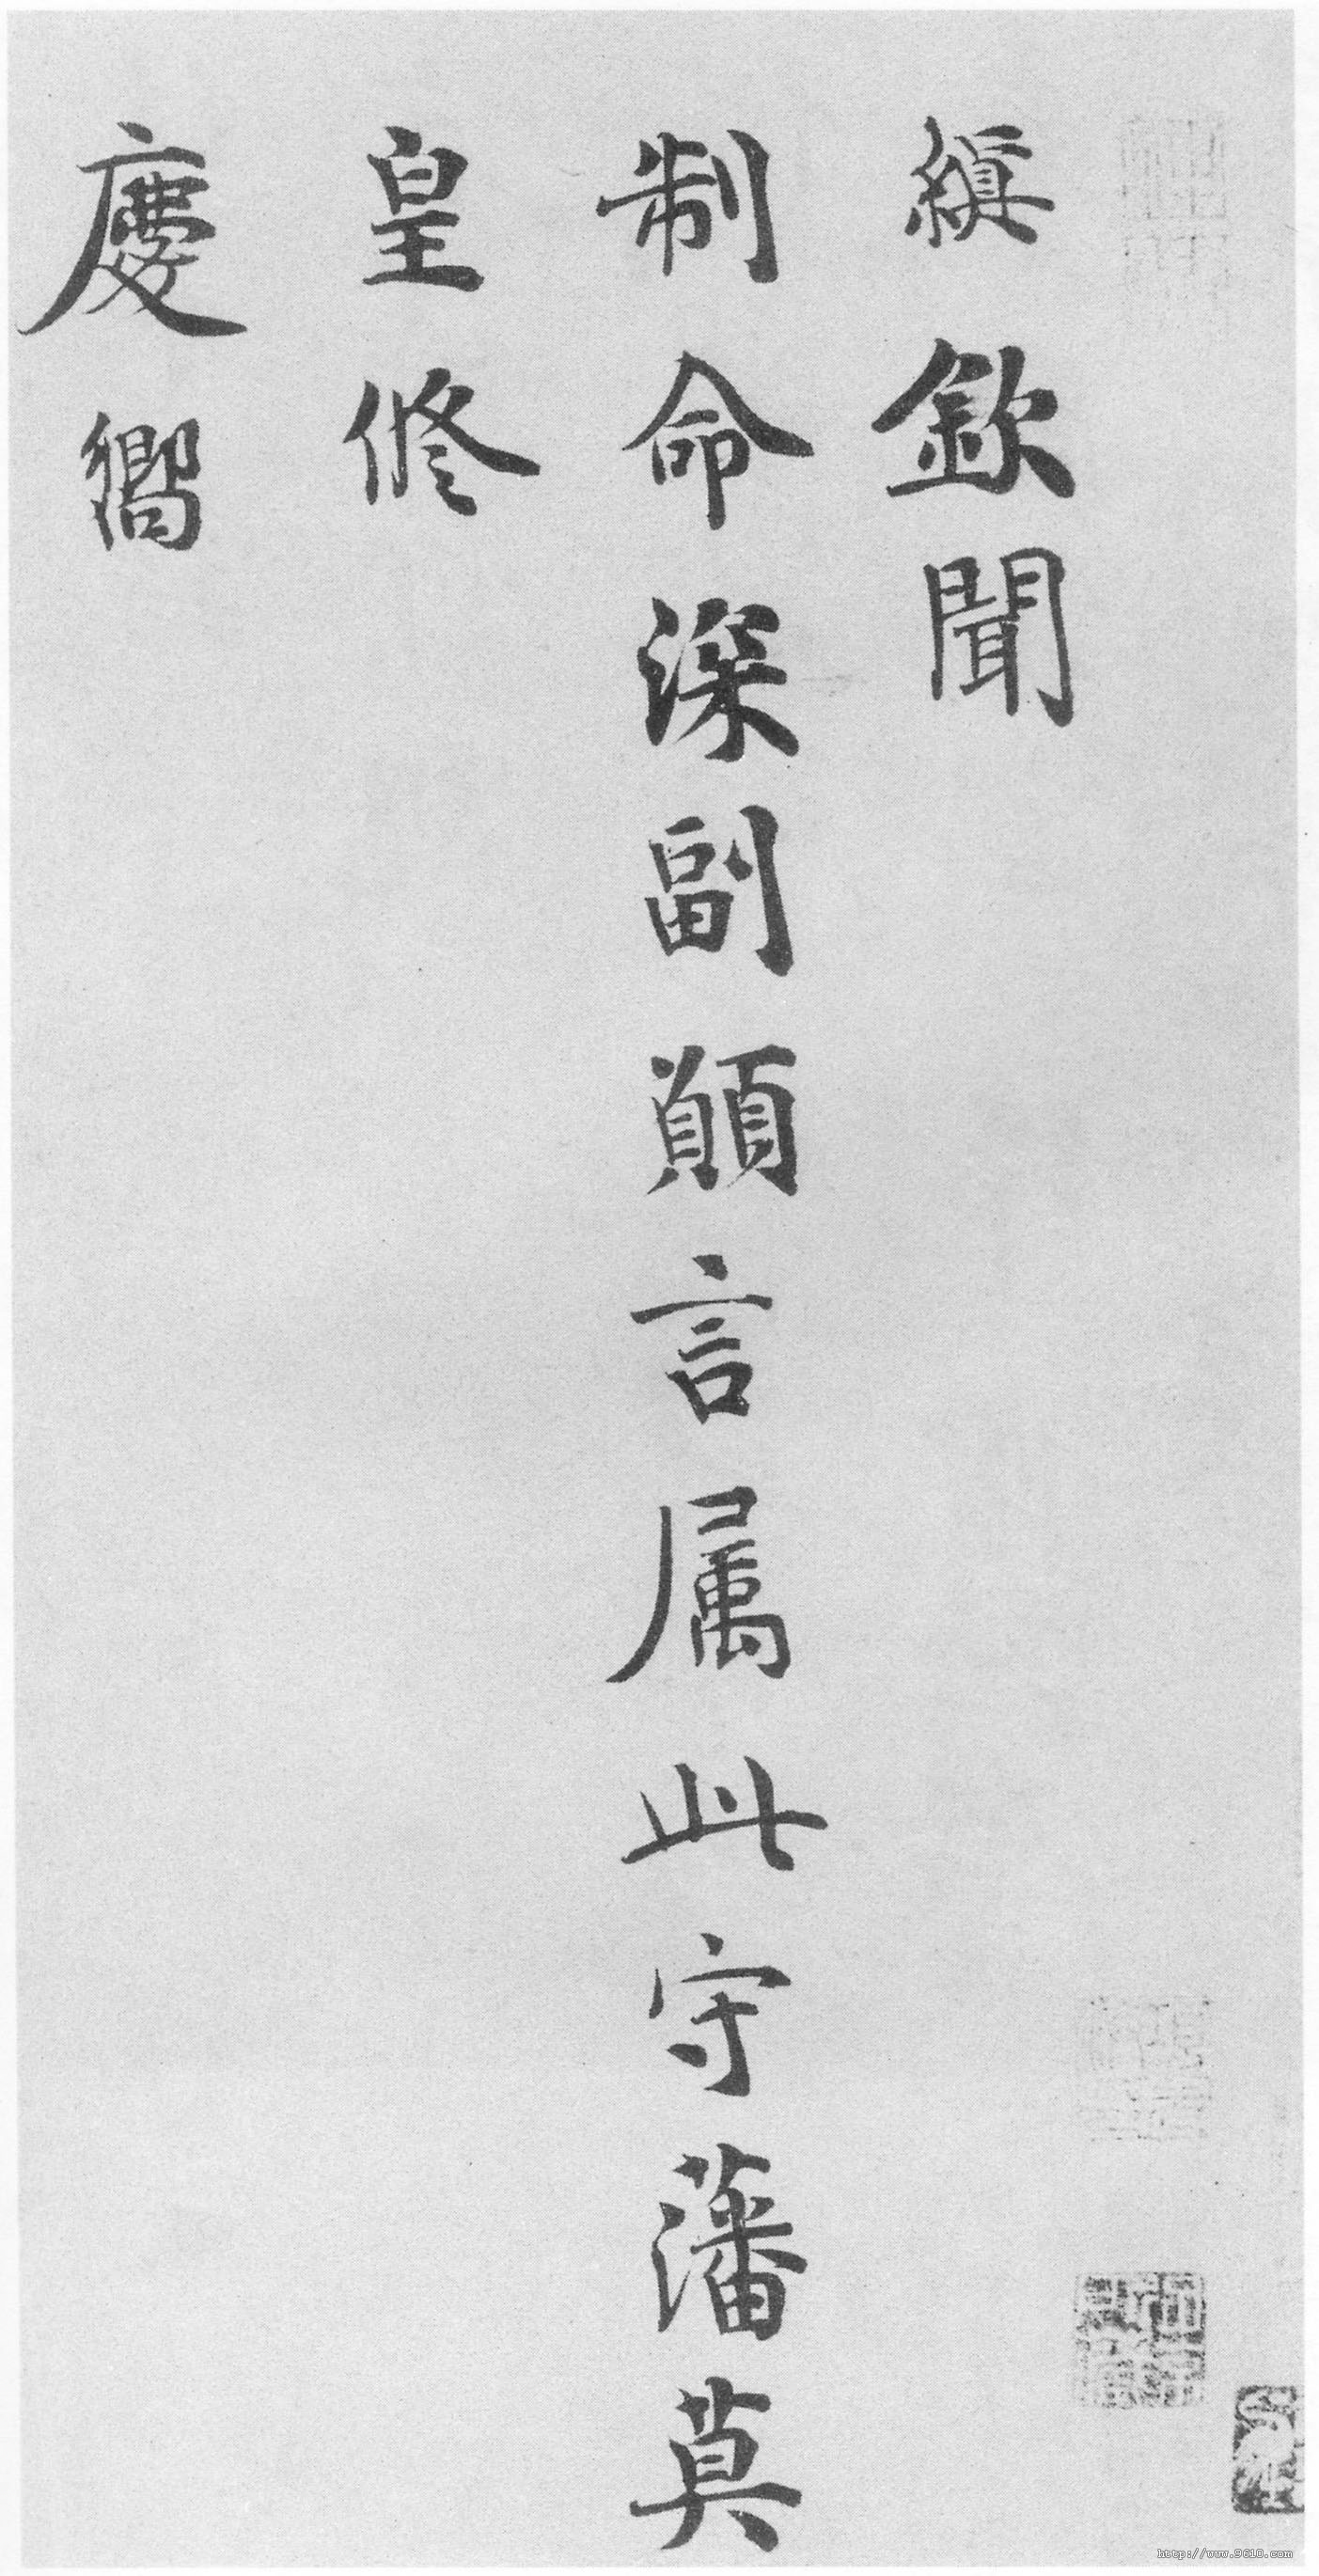 縝欽聞
制命深副願言属此守藩莫
皇修
慶嚮
http://www.9610.com